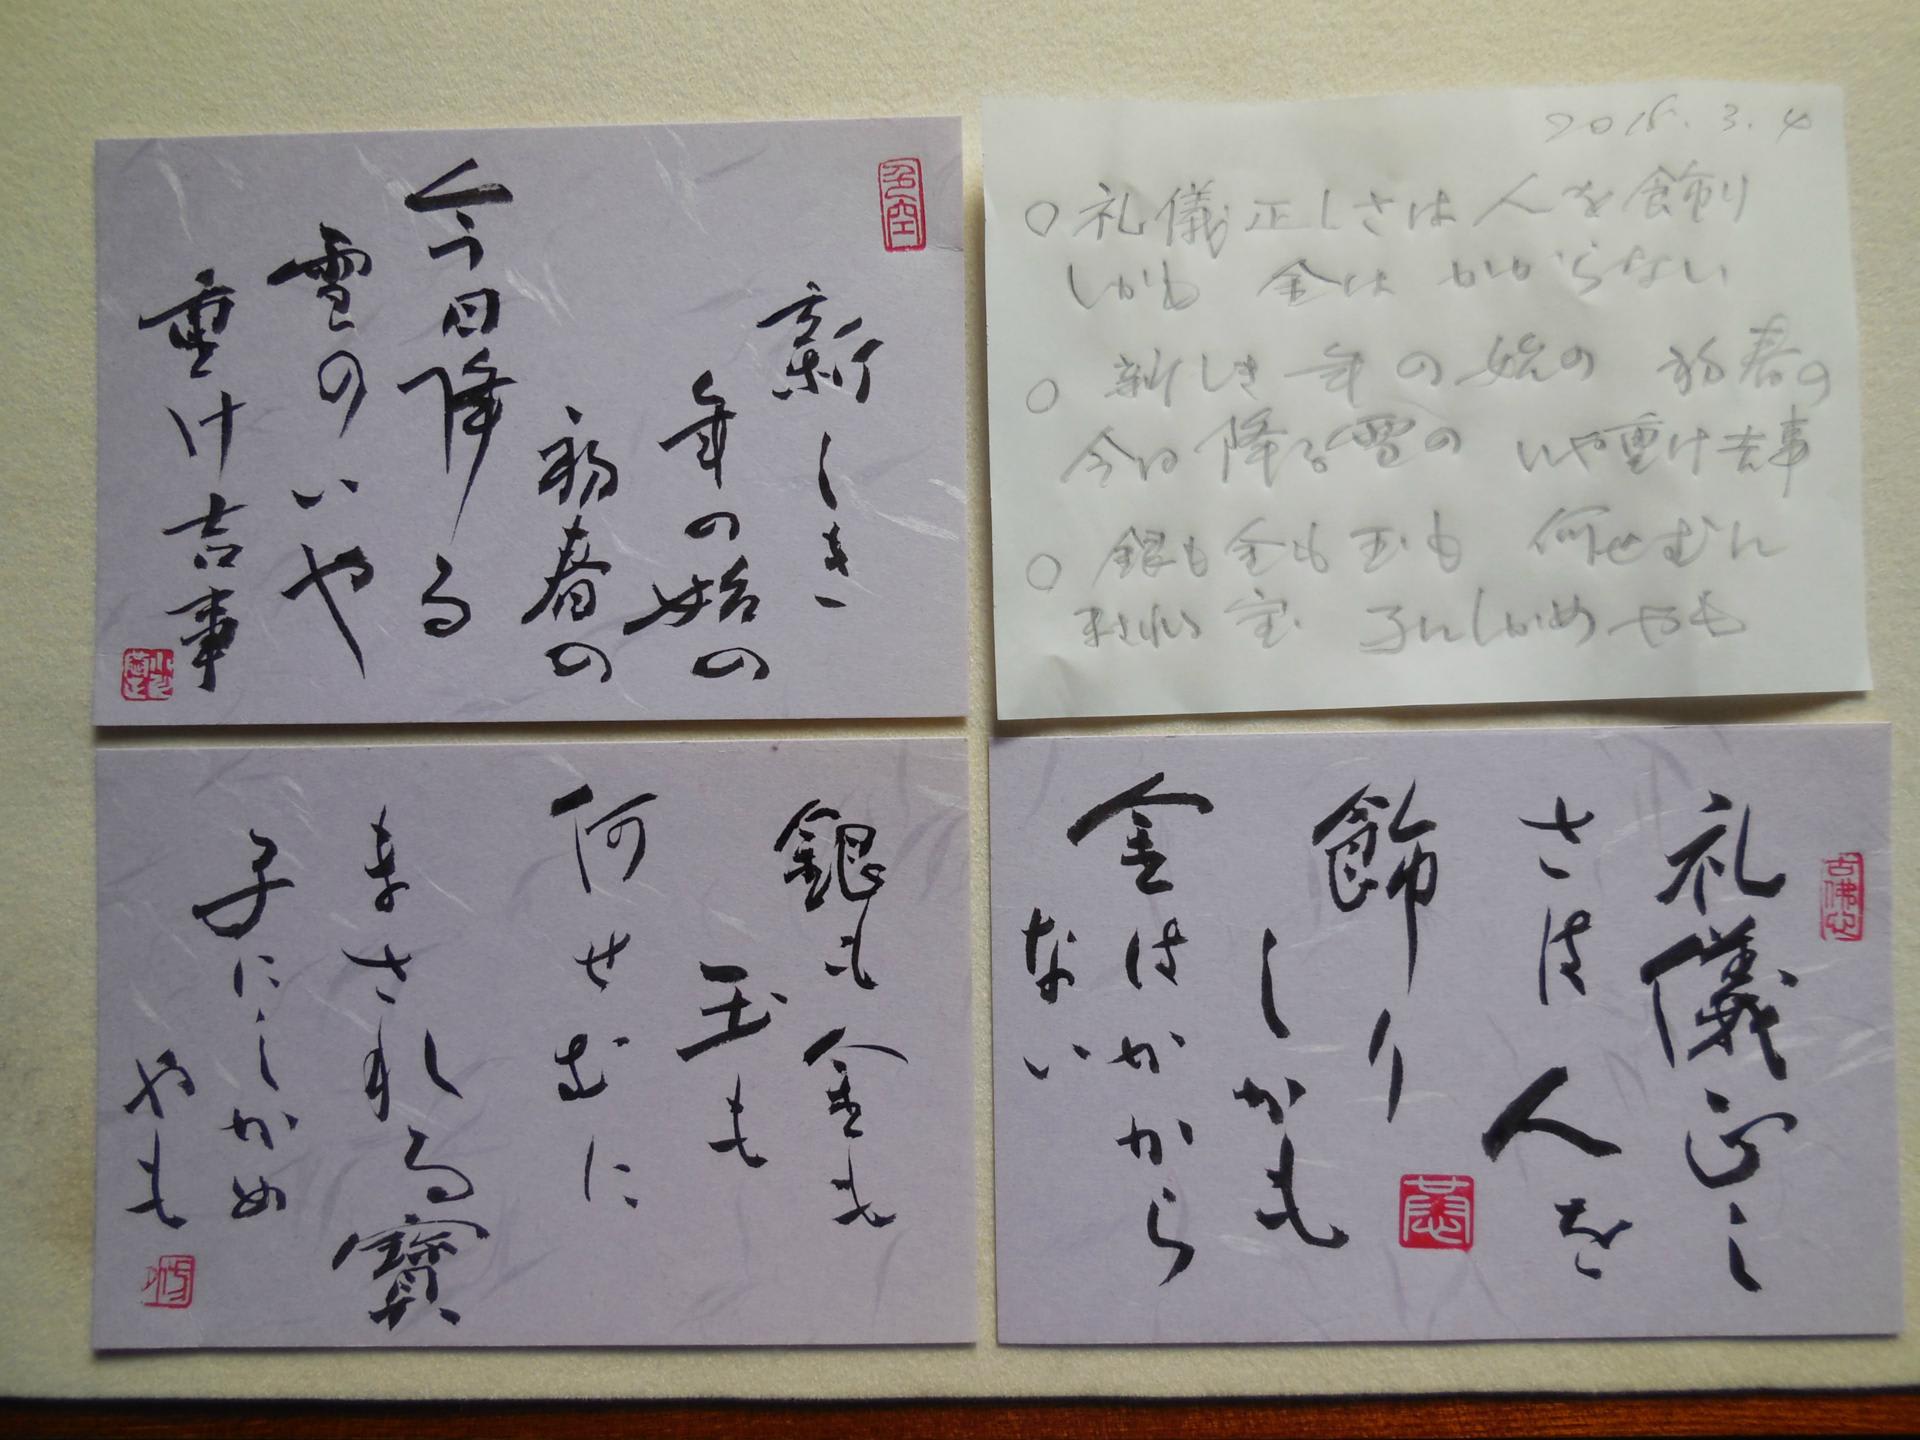 新しき
年の始の
初春の
今日降る
雪のいや
重け吉事
2018.3.4
○礼儀正しさは人を飾り
しかも 金は かからない
○新しき年の始の 初春の
今日降る雪の いや重け吉事
○銀も金も玉も 何せむに
まされる宝 子にしかめやも
銀も金も
玉も
何せむに
まされる寶
子にしかめ
やも
礼儀正し
さは人を
飾り
しかも
金はかから
ない
古佛心